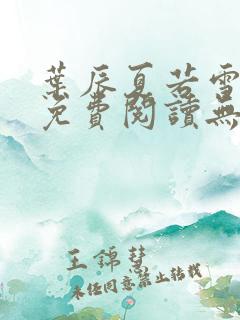 葉辰夏若雪
免費閱讀無
王錦彗
未經同意禁止轉載